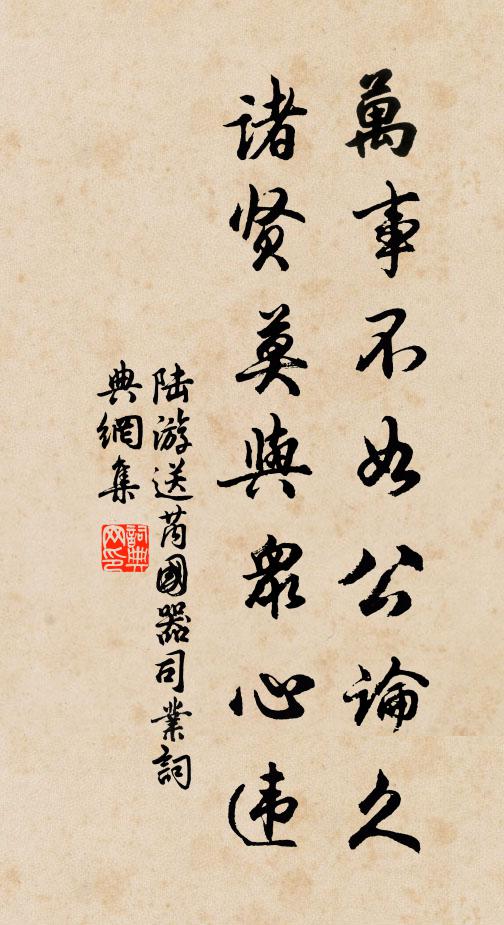 萬事不如公論久
諸贤莫與眾心违
陆游送芮國器司業詞
典網集
詞典
网印